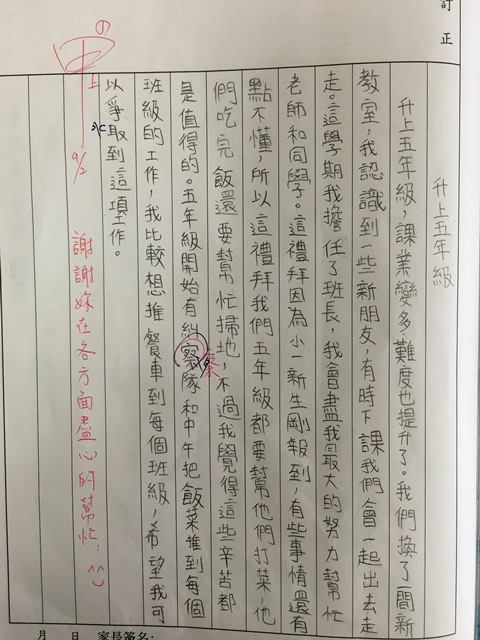 訂正
升上五年級
升上五年級，課業變多，難度也提升了。我們換了一間新
教室，我認識到一些新朋友，有時下課我們會一起出去走
走。這學期我擔任了班長，我會盡我最大的努力幫忙
老師和同學。這禮拜因為小一新生剛報到，有些事情還有
點不懂，所以這禮拜我們五年級都要幫他們打菜，他
們吃完飯還要幫忙掃地，不過我覺得這些辛苦都
是值得的。五年級開始有糾察隊和中午把飯菜推到每個
班級的工作，我比較想推餐車到每個班級，希望我可
以爭取到這項工作。
甲上
9/2
謝謝妳在各方面盡心的幫忙！^^
月 日 家長簽名：